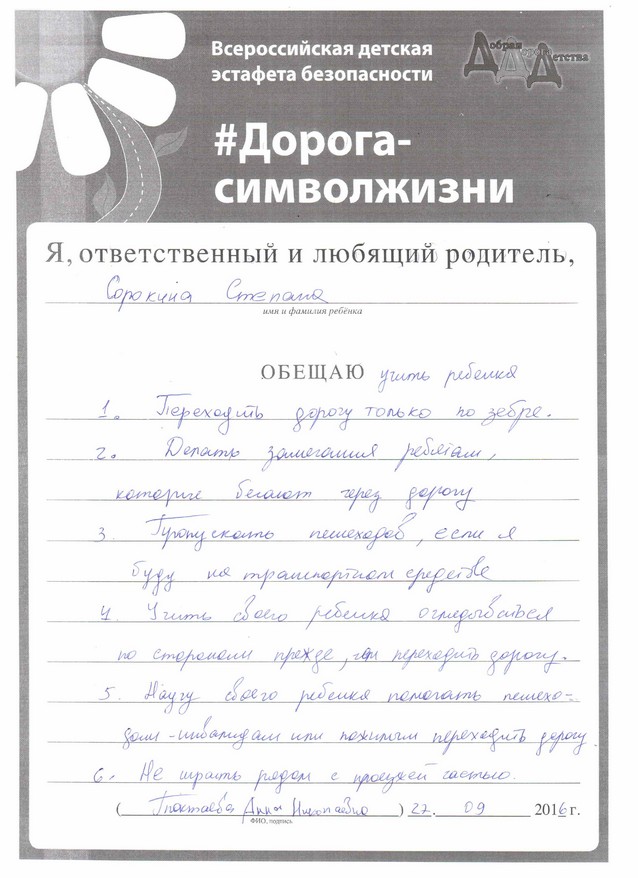 Всероссийская детская
эстафета безопасности
Добрая Дорога Детства
#Дорога-
символжизни
Я, ответственный и любящий родитель,
Сорокина Степана
имя и фамилия ребёнка
ОБЕЩАЮ учить ребенка
1. Переходить дорогу только по зебре.
2. Делать замечания ребятам,
которые бегают через дорогу
3. Пропускать пешеходов, если я
буду на транспортном средстве
4. Учить своего ребенка оглядываться
по сторонам прежде, чем переходить дорогу.
5. Научу своего ребенка помогать пешехо-
дам-инвалидам или пожилым переходить дорогу
6. Не играть рядом с проезжей частью.
( Анна Николаевна ) 27. 09 2016 г.
ФИО, подпись